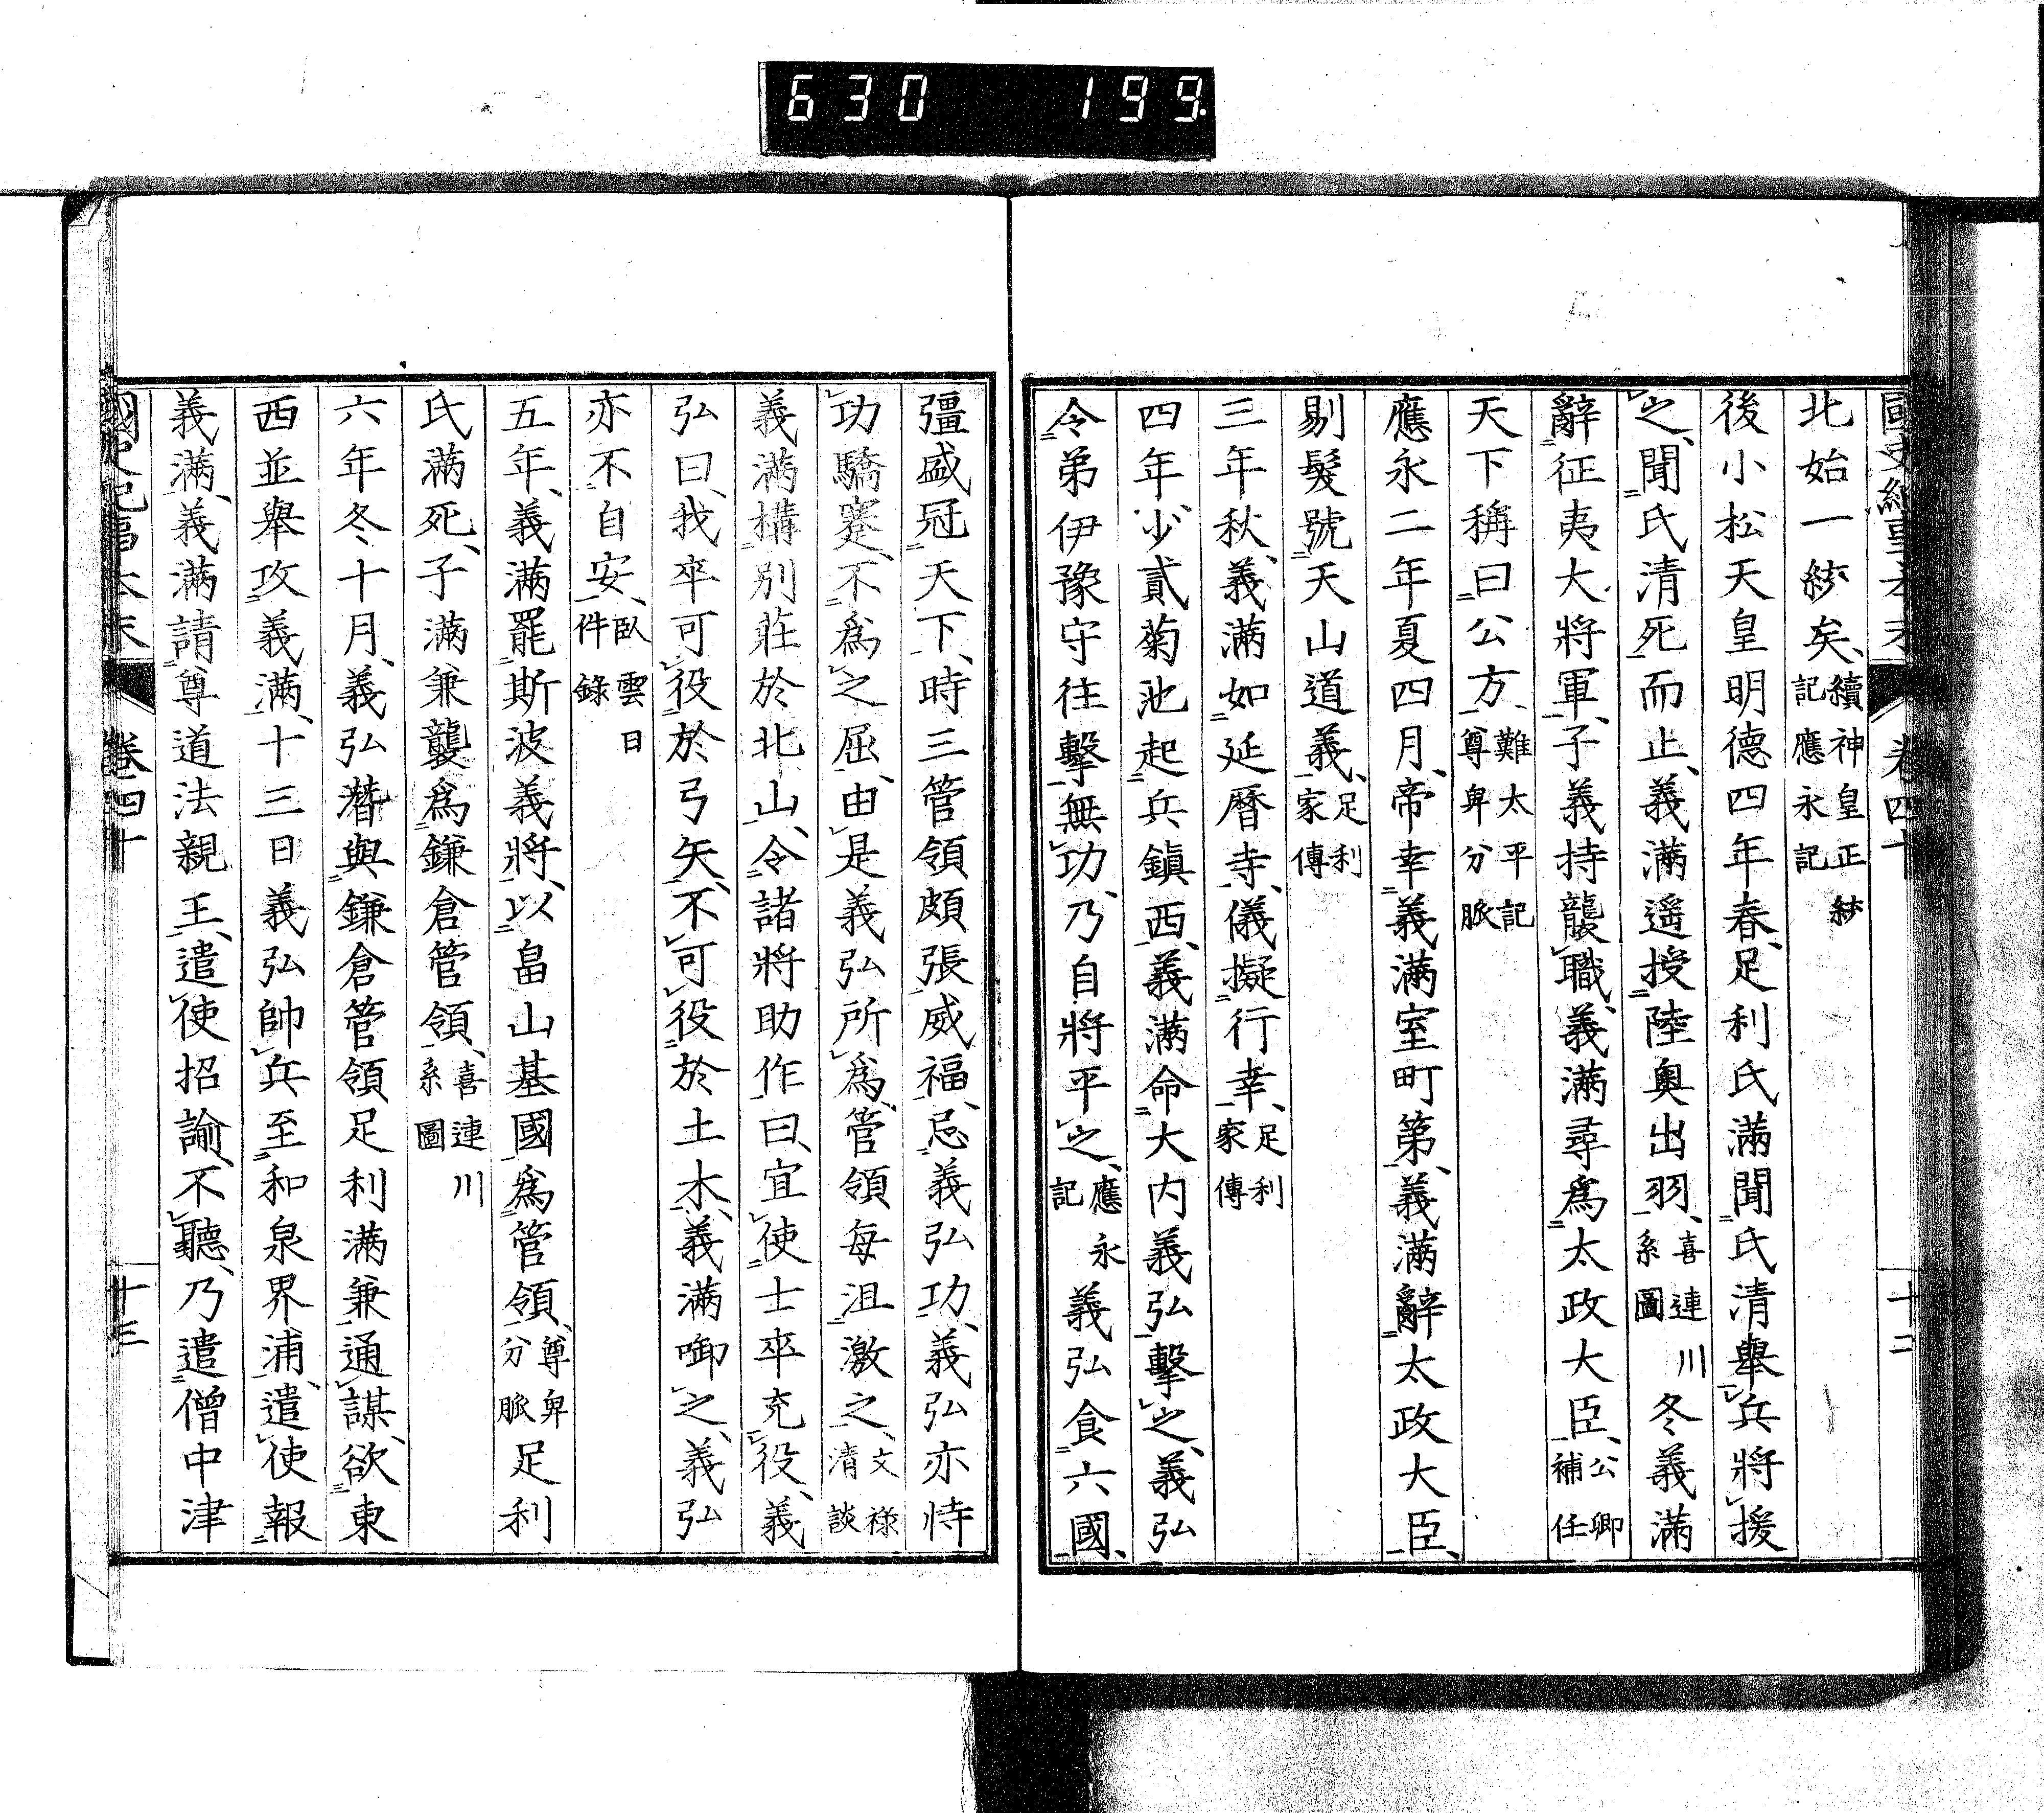 630 199
國史紀事本末 卷四十 十二
北始一統矣、續神皇正統記應永記
後小松天皇明德四年春、足利氏滿聞氏清舉兵將援
之、聞氏清死而止、義滿遥授陸奧出羽、喜連川系圖冬義滿
辭征夷大將軍、子義持襲職、義滿尋爲太政大臣、公卿補任
天下稱曰公方、難太平記尊卑分脈
應永二年夏四月、帝幸義滿室町第、義滿辭太政大臣、
剔髮號天山道義、足利家傳
三年秋、義滿如延暦寺、儀擬行幸、足利家傳
四年、少貳菊池起兵鎭西、義滿命大内義弘擊之、義弘
令弟伊豫守往擊無功、乃自將平之、應永記義弘食六國、
彊盛冠天下、時三管領頗張威福、忌義弘功、義弘亦恃
功驕蹇、不爲之屈、由是義弘所爲、管領每沮激之、文祿清談
義滿構別莊於北山、令諸將助作曰、宜使士卒充役、義
弘曰、我卒可役於弓矢、不可役於土木、義滿啣之、義弘
亦不自安、臥雲日件錄
五年、義滿罷斯波義將、以畠山基國爲管領、尊卑分脈足利
氏滿死、子滿兼襲爲鎌倉管領、喜連川系圖
六年冬十月、義弘潛與鎌倉管領足利滿兼通謀、欲東
西並舉攻義滿、十三日義弘帥兵至和泉界浦、遣使報
義滿、義滿請尊道法親王、遣使招諭、不聽、乃遣僧中津
國史紀事本末 卷四十 十三